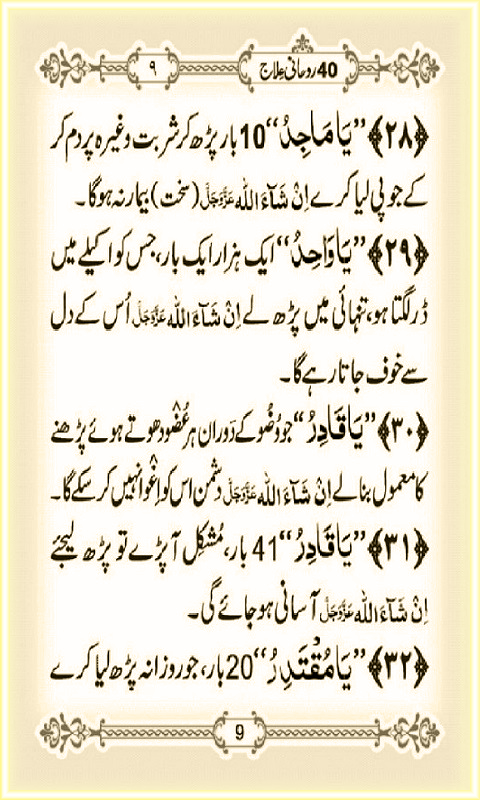 40 روحانی علاج ۹
﴿۲۸﴾ ”یَا مَاجِدُ“ 10 بار پڑھ کر شربت وغیرہ پر دم کر
کے جو پی لیا کرے اِنْ شَآءَ اللہ عَزَّوَجَلَّ (سخت) بیمار نہ ہوگا۔
﴿۲۹﴾ ”یَا وَاحِدُ“ ایک ہزار ایک بار، جس کو اکیلے میں
ڈر لگتا ہو، تنہائی میں پڑھ لے اِنْ شَآءَ اللہ عَزَّوَجَلَّ اُس کے دل
سے خوف جاتا رہے گا۔
﴿۳۰﴾ ”یَا قَادِرُ“ جو وُضو کے دَوران ہر عُضْو دھوتے ہوئے پڑھنے
کا معمول بنالے اِنْ شَآءَ اللہ عَزَّوَجَلَّ دشمن اس کو اِغْوا نہیں کر سکے گا۔
﴿۳۱﴾ ”یَا قَادِرُ“ 41 بار، مُشکِل آ پڑے تو پڑھ لیجئے
اِنْ شَآءَ اللہ عَزَّوَجَلَّ آسانی ہو جائے گی۔
﴿۳۲﴾ ”یَا مُقْتَدِرُ“ 20 بار، جو روزانہ پڑھ لیا کرے
9